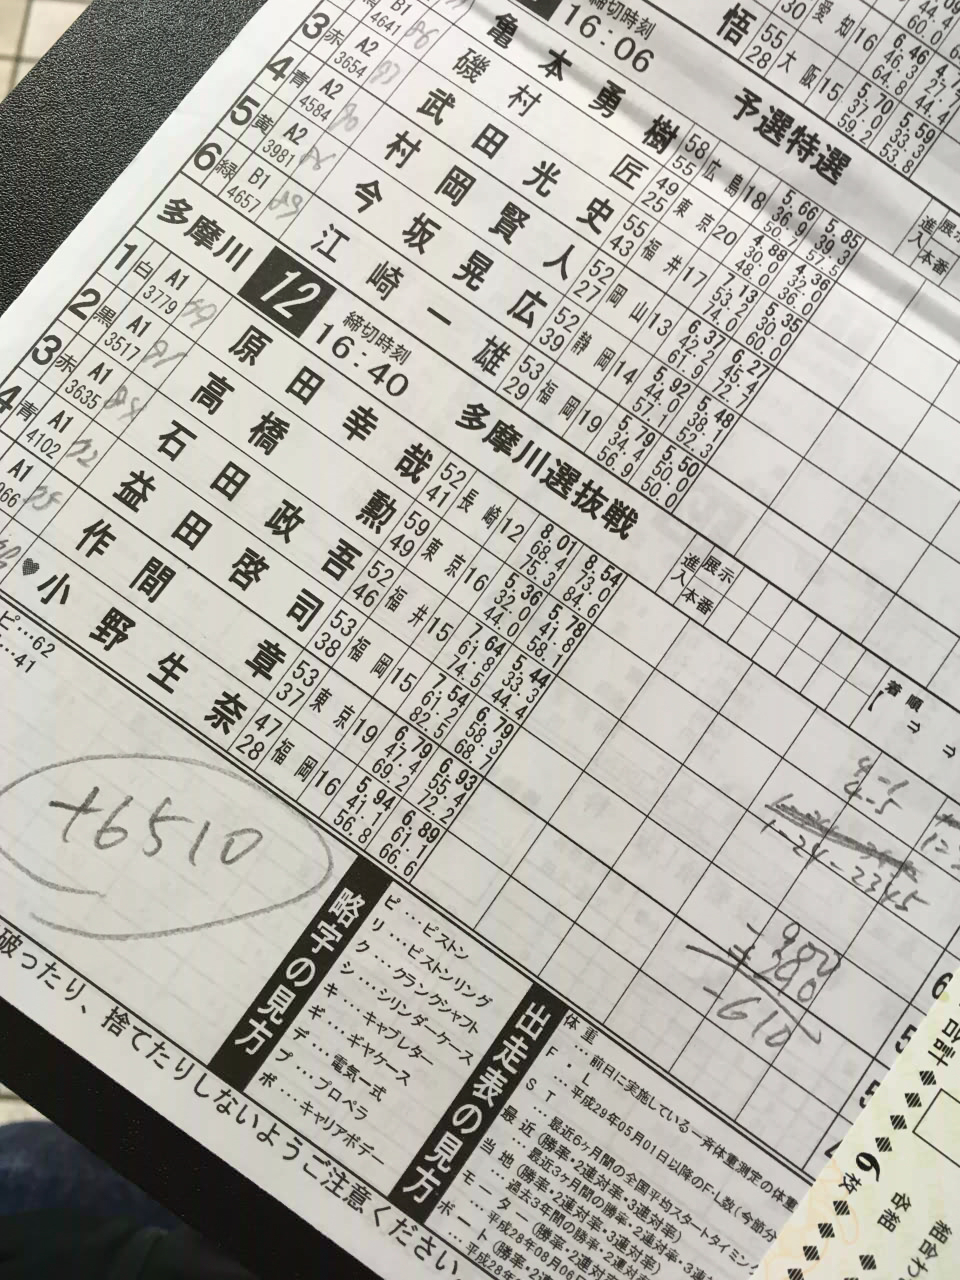 悟 55 28 大阪15 5.70 37.0 59.2 5.59 33.3 53.8
30 愛知16 6.46 46.3 64.8
締切時刻
16:06
予選特選
進入 展示 本番
亀本勇樹 58 55 広島18 5.66 36.9 50.7 5.85 39.3 57.5
B1 4641 磯村匠 49 25 東京20 4.88 30.0 48.0 4.36 32.0 36.0
3 赤 A2 3654 武田光史 55 43 福井17 7.13 53.2 74.0 5.35 30.0 60.0
4 青 A2 4584 村岡賢人 52 27 岡山13 6.37 42.2 61.9 6.27 45.4 72.7
5 黄 A2 3981 今坂晃広 52 39 静岡14 5.92 44.0 57.1 5.48 38.1 52.3
6 緑 B1 4657 江崎一雄 53 29 福岡19 5.79 34.4 56.9 5.50 50.0 50.0
多摩川 12 締切時刻 16:40 多摩川選抜戦
進入 展示 本番
着順
1 白 A1 3779 原田幸哉 52 41 長崎12 8.01 68.4 75.3 8.54 73.0 84.6
2 黒 A1 3517 高橋勲 59 49 東京16 5.36 32.0 44.0 5.78 41.8 58.1
3 赤 A1 3635 石田政吾 52 46 福井15 7.64 61.8 74.5 5.44 33.3 44.4
4 青 A1 4102 益田啓司 53 38 福岡15 7.54 61.2 82.5 6.79 58.3 68.7
A1 作間章 53 37 東京19 6.79 47.4 69.2 6.93 55.4 72.2
♥小野生奈 47 28 福岡16 5.94 41.1 56.8 6.89 61.1 66.6
ピ…62
…41
+6510
4-1
4-5
1-24-2345
-900
-610
略字の見方
ピ…ピストン
リ…ピストンリング
ク…クランクシャフト
シ…シリンダーケース
キ…キャブレター
ギ…ギヤケース
デ…電気一式
プ…プロペラ
ボ…キャリアボデー
出走表の見方
体重…前日に実施している一斉体重測定の体重
F・L…平成29年05月01日以降のF・L数(今節分
ST…最近6ヶ月間の全国平均スタートタイミング
最近(勝率・2連対率・3連対率)
…最近3ヶ月間の勝率・2連対率
当地(勝率・2連対率・3連対率)
…過去3年間の勝率・2連対率・3
モーター(勝率・2連対率・3連対率)
…平成28年08月06日
ボート(勝率・2連対率
…平成28年
破ったり、捨てたりしないようご注意ください。
合計
6枚
各組
組合わ